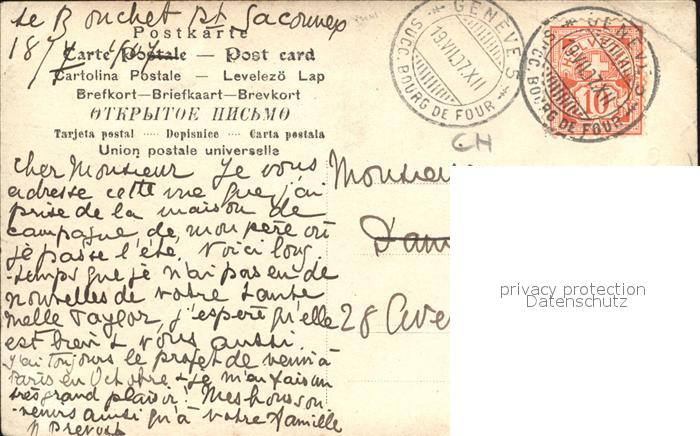 Le Bouchet Pt Saconnex
18/7 1907
Postkarte
Carte Postale — Post card
Cartolina Postale — Levelező Lap
Brefkort—Briefkaart—Brevkort
ОТКРЫТОЕ ПИСЬМО
Tarjeta postal ····· Dopisnice ···· Carta postala
Union postale universelle
GENÈVE 5
19.VII.07.XII
SUCC. BOURG DE FOUR
GENÈVE 5
19.VII.07.XII
SUCC. BOURG DE FOUR
10
CH
Cher Monsieur Je vous
adresse cette vue que j'ai
prise de la maison de
campagne de mon père où
je passe l'été. Voici long
-temps que je n'ai pas eu de
nouvelles de votre tante
Melle Taylor, j'espère qu'elle
est bien & vous aussi.
J'ai toujours le projet de venir à
Paris en Octobre & je m'en fais un
très grand plaisir! Mes bons sou
-venirs ainsi qu'à votre famille
Prevost
Monsieur
28 Ave
privacy protection
Datenschutz